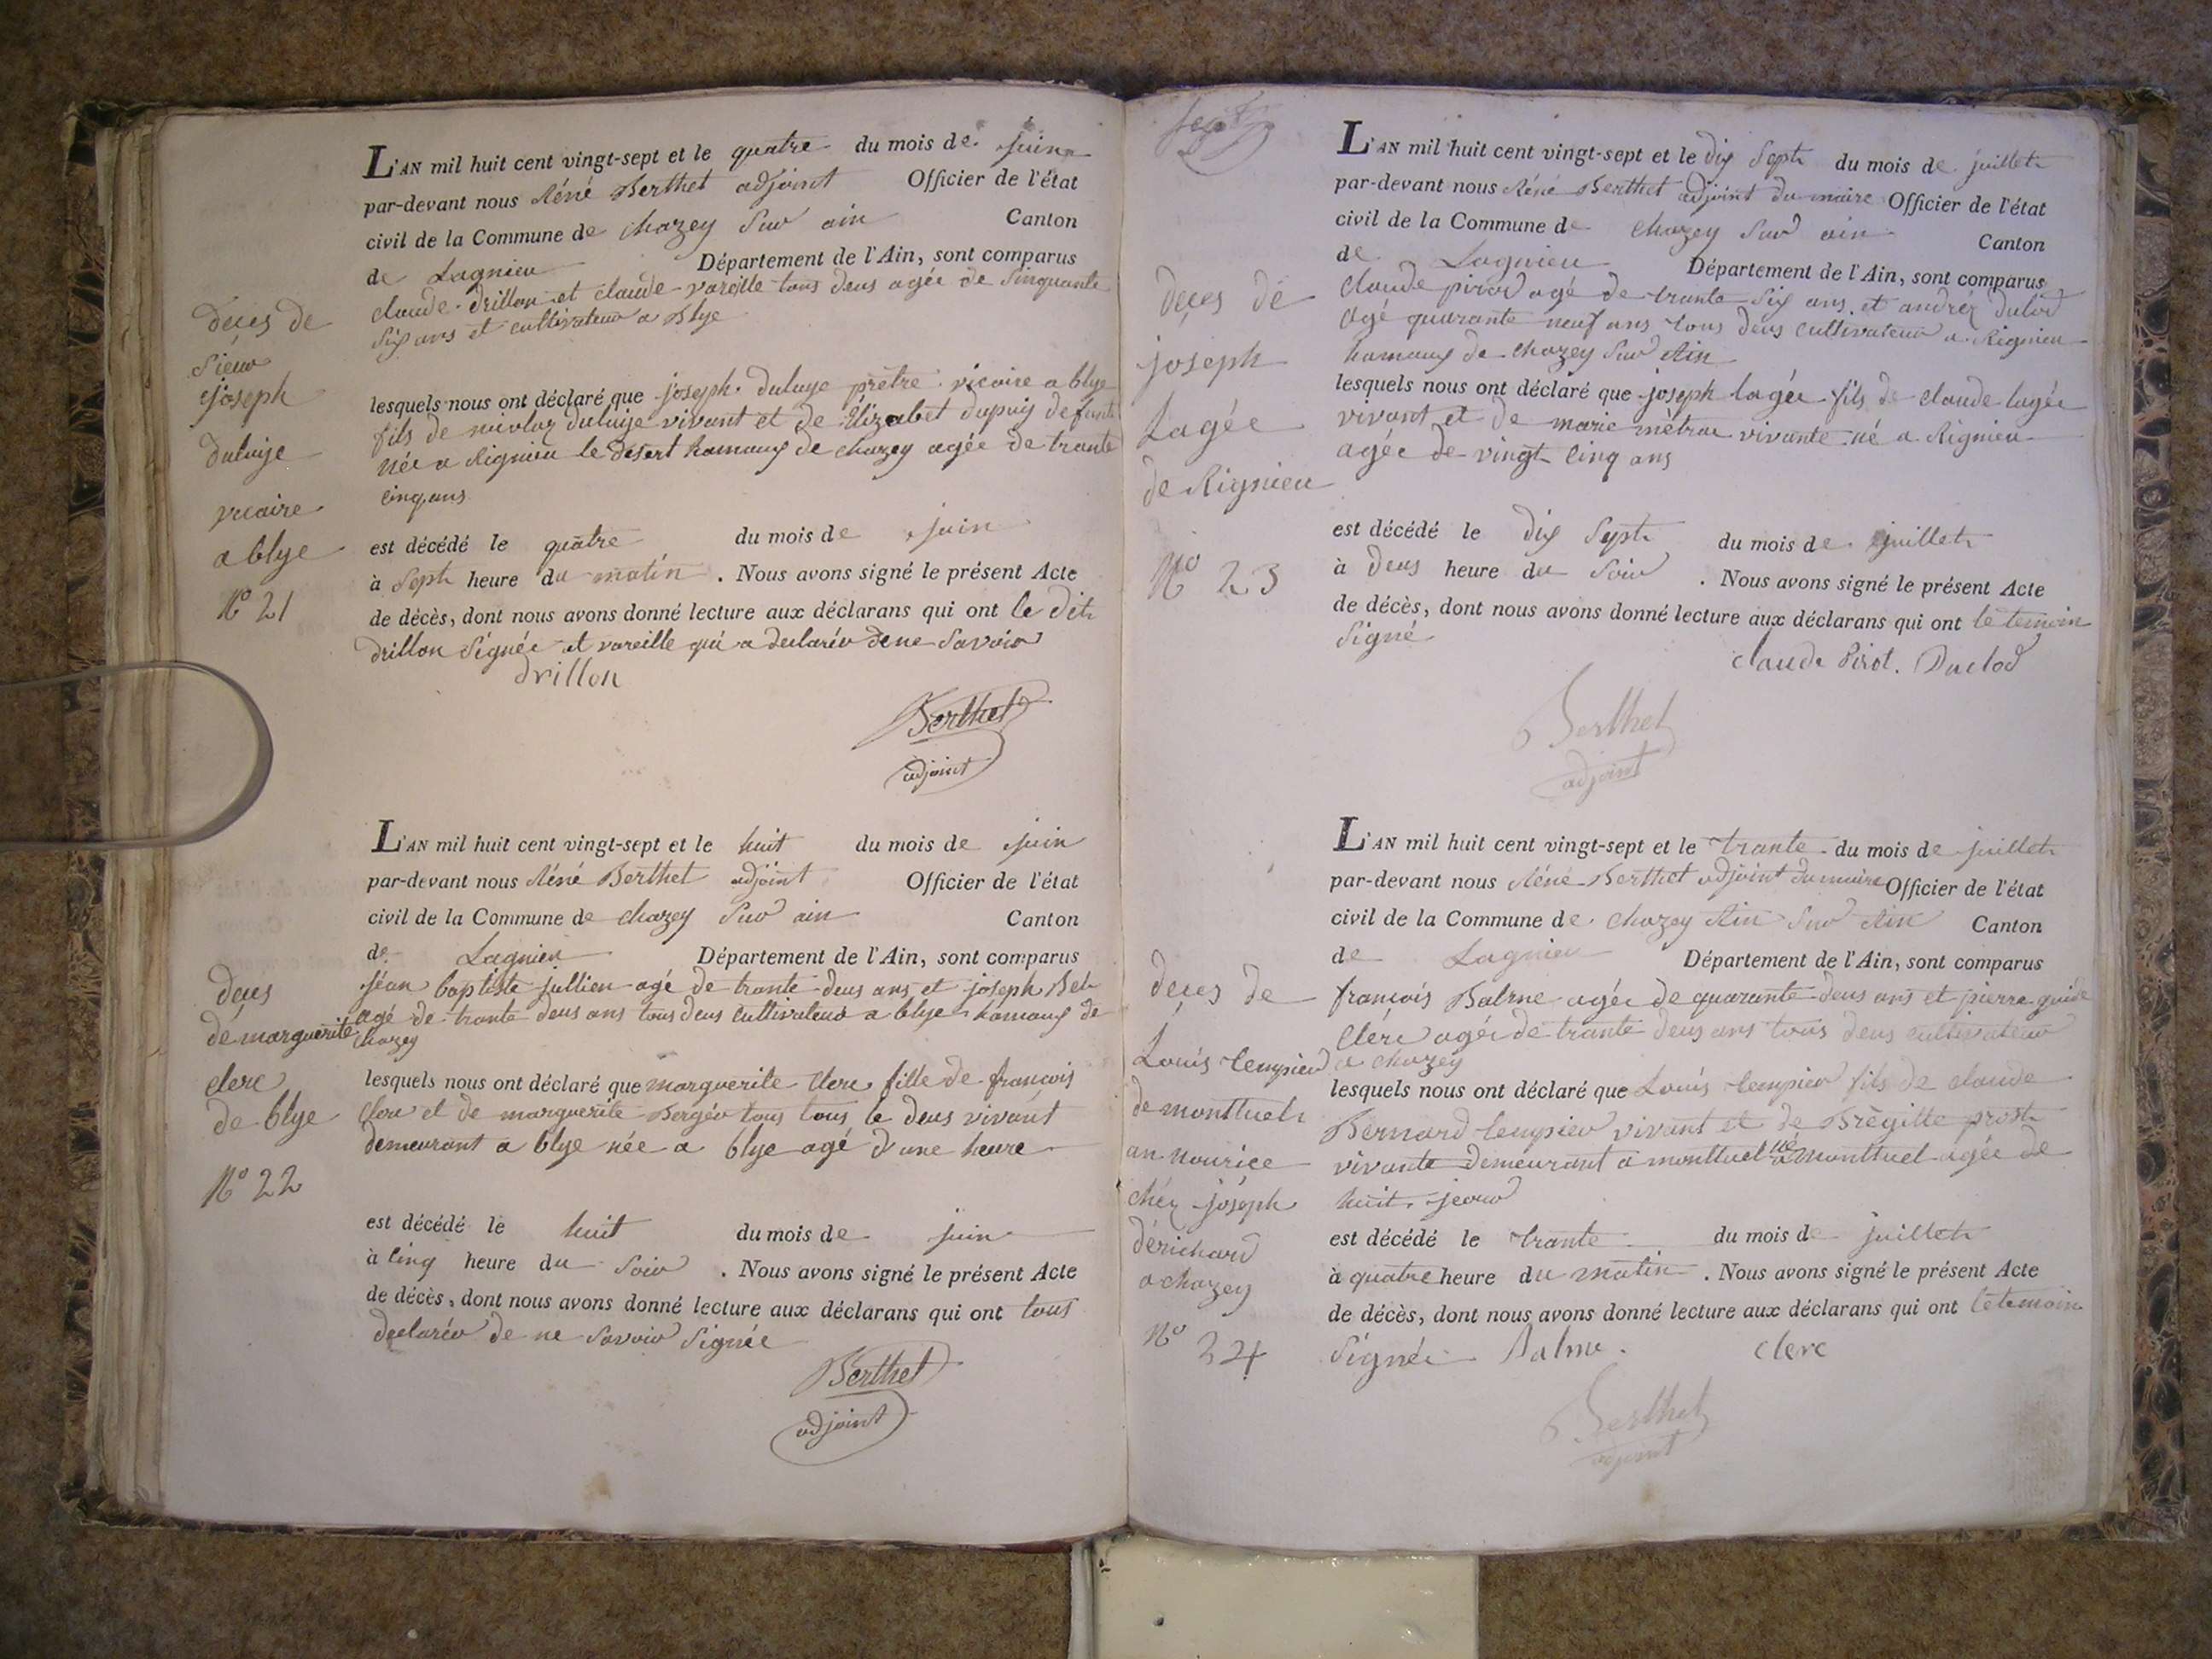 L'AN mil huit cent vingt-sept et le quatre du mois de juin
par-devant nous Réné Berthet adjoint Officier de l'état
civil de la Commune de chazey Sur ain Canton
de Lagnieu Département de l'Ain, sont comparus
claude drillon et claude vareille tous deus agée de Sinquante
Six ans et cultivateur a Blye
deces de
Sieur
joseph
duluije
vicaire
a blye
N° 21
lesquels nous ont déclaré que joseph duluye prêtre vicaire a blye
fils de nicolaz duluije vivant et de Élizabet dupuis defunte
née a Rignieu le desert hamaux de chazey agée de trante
cinq ans
est décédé le quatre du mois de juin
à Sept heure du matin . Nous avons signé le présent Acte
de décès, dont nous avons donné lecture aux déclarans qui ont le dit
drillon Signée et vareille qui a declarér de ne Savoir
drillon
Berthet
adjoint
L'AN mil huit cent vingt-sept et le huit du mois de juin
par-devant nous Réné Berthet adjoint Officier de l'état
civil de la Commune de chazey Sur ain Canton
de Lagnieu Département de l'Ain, sont comparus
jéan baptiste jullien agé de trante deus ans et joseph
agé de trante deus ans tous deus cultivateur a blye hamaux de
chazey
deces
de marguerite
clerc
de blye
N° 22
lesquels nous ont déclaré que marguerite clerc fille de francois
clerc et de marguerite Bergér tous tous le deus vivant
demeurant a blye née a blye agé d'une heure
est décédé le huit du mois de juin
à cinq heure du Soir . Nous avons signé le présent Acte
de décès, dont nous avons donné lecture aux déclarans qui ont tous
declarér de ne Savoir Signée
Berthet
adjoint
sept
L'AN mil huit cent vingt-sept et le dix Sept du mois de juillet
par-devant nous Réné Berthet adjoint du maire Officier de l'état
civil de la Commune de chazey Sur ain Canton
de Lagnieu Département de l'Ain, sont comparus
claude pirod agé de trante Six ans et andréz dulod
agé quarante neuf ans tous deus cultivateur a Rignieu
hamaux de chazey Sur Ain
deces de
joseph
Lagée
de Rignieu
N° 23
lesquels nous ont déclaré que joseph lagée fils de claude lagée
vivant et de marie métrae vivante né a Rignieu
agée de vingt cinq ans
est décédé le dix Sept du mois de juillet
à deus heure du Soir . Nous avons signé le présent Acte
de décès, dont nous avons donné lecture aux déclarans qui ont le temoin
Signé
claude Pirot. Duclod
Berthet
adjoint
L'AN mil huit cent vingt-sept et le trante du mois de juillet
par-devant nous Réné Berthet adjoint du maire Officier de l'état
civil de la Commune de chazey Ain Sur Ain Canton
de Lagnieu Département de l'Ain, sont comparus
francois Balme agée de quarante deus ans et pierre guide
clerc agée de trante deus ans tous deus cultivateur
a chazey
deces de
Louis tempier
de monttuel
an nourice
chéz joseph
dérichard
a chazey
N° 24
lesquels nous ont déclaré que Louis tempier fils de claude
Bernard tempier vivant et de Brégitte prost
vivante demeurant a monttuel né a Monttuel agée de
huit jeour
est décédé le trante du mois de juillet
à quatre heure du matin . Nous avons signé le présent Acte
de décès, dont nous avons donné lecture aux déclarans qui ont le temoin
Signée Balme. clerc
Berthet
adjoint